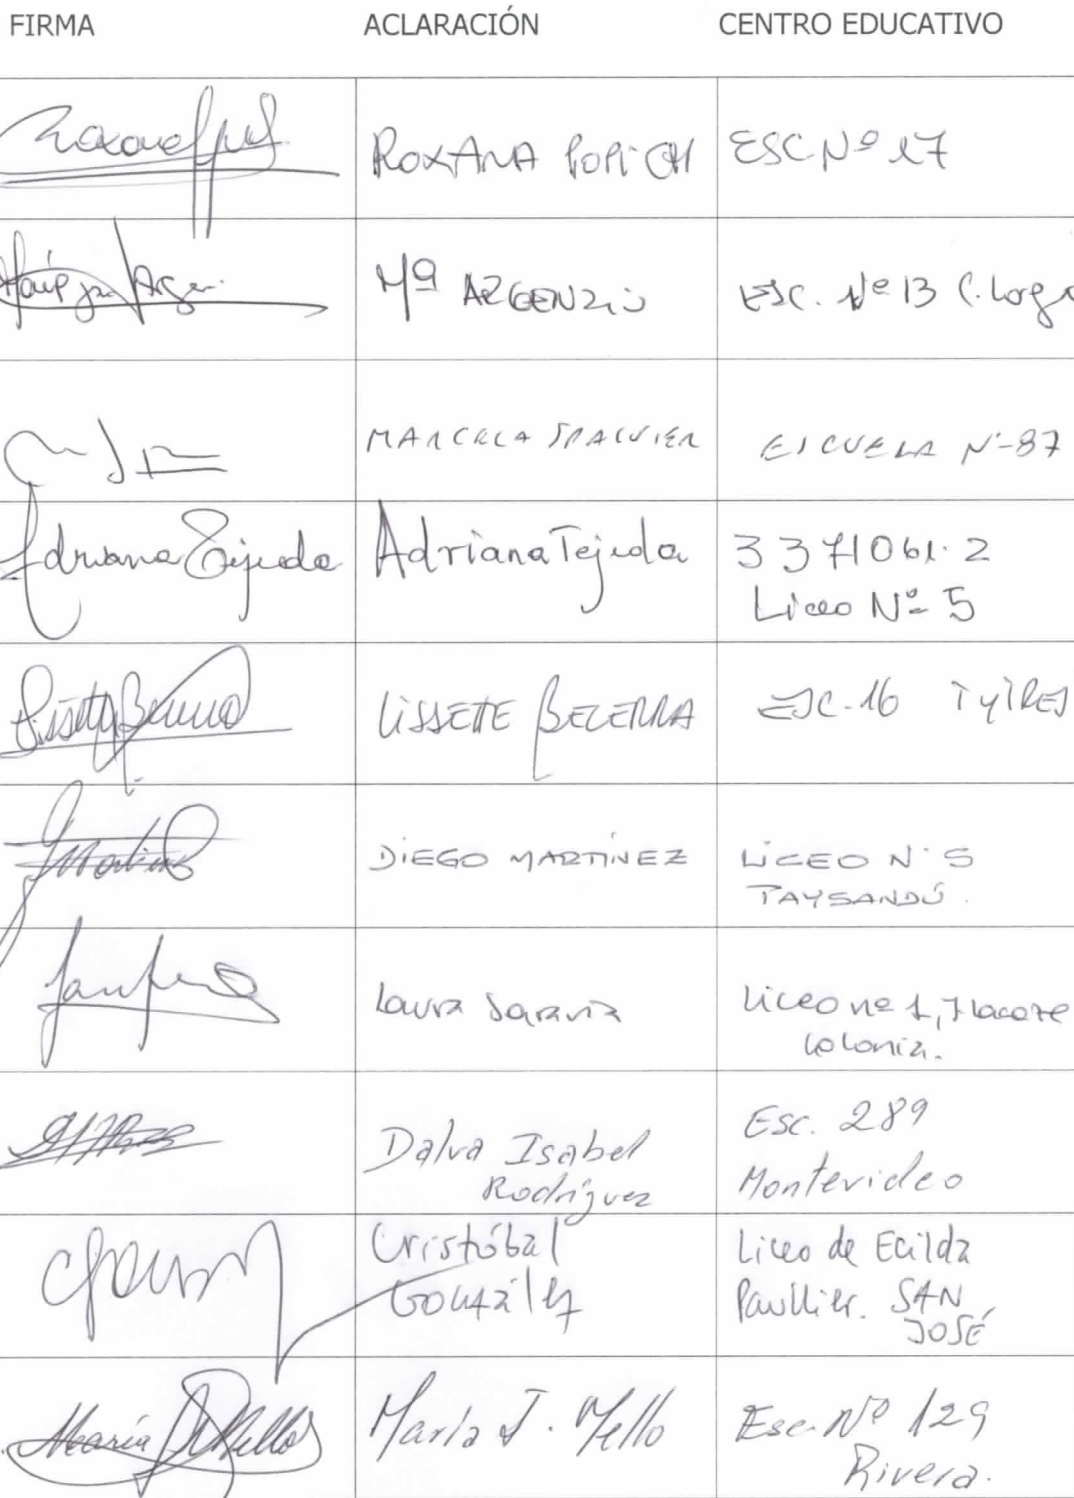 FIRMA ACLARACIÓN CENTRO EDUCATIVO
ROXANA POPICH ESC Nº 17
Mª ARGENZIO ESC. Nº 13
MARCELA ESCUELA Nº 87
Adriana Tejeda Adriana Tejeda 3371061-2
Liceo Nº 5
LISSETTE BECERRA ESC. 16
DIEGO MARTÍNEZ LICEO Nº 5
PAYSANDÚ.
Laura Saravia Liceo nº 1,
Colonia.
Dalva Isabel
Rodríguez
Esc. 289
Montevideo
Cristóbal
González
Liceo de Ecilda
Paullier. SAN
JOSÉ
María Mello María J. Mello Esc. Nº 129
Rivera.